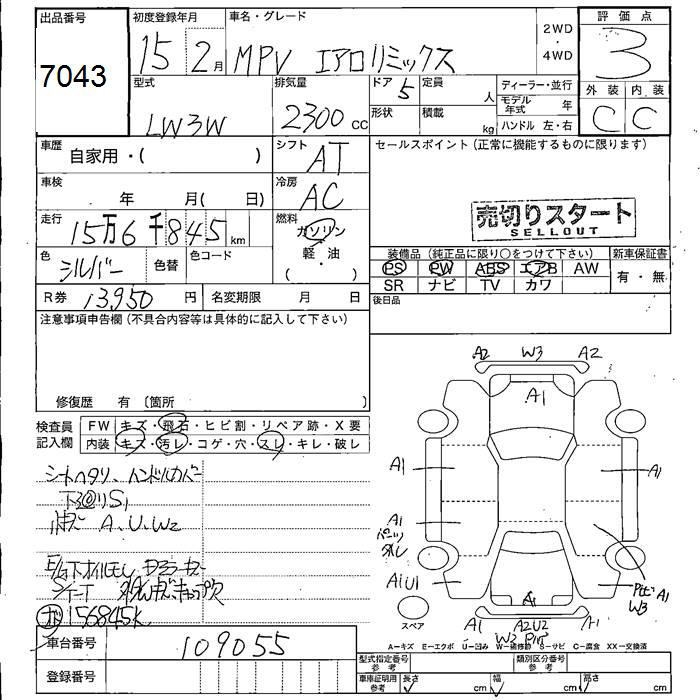 出品番号 初度登録年月 車名・グレード 2WD・4WD 評価点
7043 15 2月 MPV エアロリミックス 3
型式 排気量 ドア 定員 ディーラー・並行 外装 内装
LW3W 2300cc 5 人 モデル年式 年 C C
形状 積載 kg ハンドル 左・右
車歴 自家用・( ) シフト AT セールスポイント(正常に機能するものに限ります)
車検 年 月( 日) 冷房 AC
売切りスタート
SELLOUT
走行 15万6千845km 燃料 ガソリン
軽・油
・( )
色 シルバー 色替 色コード
装備品(純正品に限り○をつけて下さい) 新車保証書
PS PW ABS エアB AW 有・無
SR ナビ TV カワ
R券 13,950円 名変期限 月 日 後日品
注意事項申告欄(不具合内容等は具体的に記入して下さい)
修復歴 有 〔箇所 〕
検査員記入欄 FW キズ・飛石・ヒビ割・リペア跡・X要
内装 キズ・汚レ・コゲ・穴・スレ・キレ・破レ
シートヘタリ、ハンドルカバー
下回りS1
A、U、W2
E/G下オイルモレ
156845K
車台番号 109055
登録番号
A2 W3 A2
A1
A1 A1
A1
A1U1
A1
W3
A1
A1 A2U2 A1
W3
スペア
A−キズ E−エクボ U−凹み W−補修跡 S−サビ C−腐食 XX−交換済
型式指定番号 参考 類別区分番号 参考
車庫証明用 参考 長さ cm 幅 cm 高さ cm